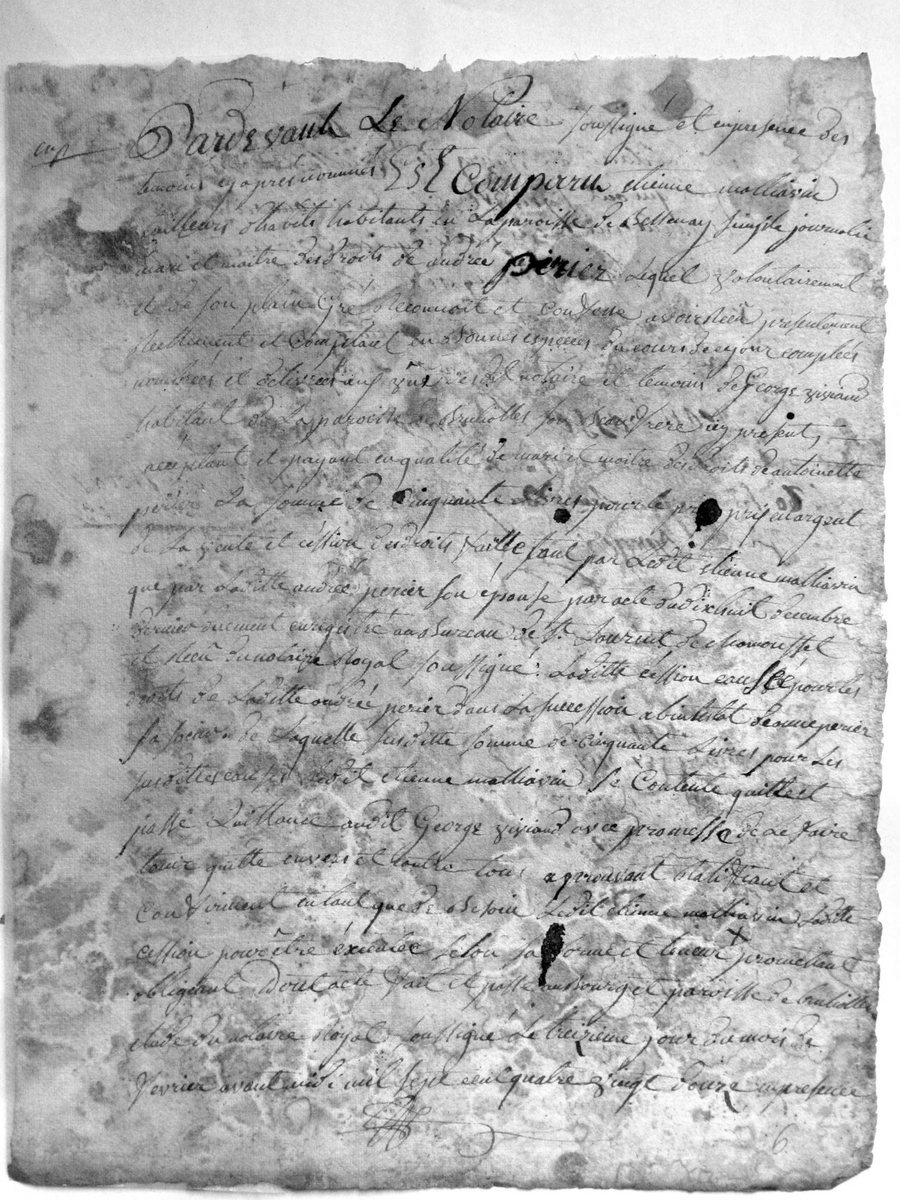 Pardevant Le Notaire soussigné et en presence des
temoins cy apres nommés Est Comparu etienne malliavin
tailleurs d'habits habitants en La paroisse de Bessenay simple journalie
mari et maitre des droits de andrée périer Lequel volontairement
et de son plain Gré Reconnoit et Confesse avoir Reçu presentement
Reellement et Comptant en Bonnes especes du cours de ce jour comptées
nombrées et délivrées aux vûe des dt notaire et temoins de George viviand
habitant de La paroisse de Brullioles son Beau frere icy present,
acceptant et payant en qualité de mari et maitre des droits de antoinette
périer La somme de Cinquante Livres pour le prix en argent
de La vente et cession des droits faitte tant par Ledit etienne malliavin
que par Laditte andrée perier son épouse par acte du dixhuit decembre
dernier duement enregistré au Bureau de St Laurent de chamousset
et Reçu du notaire Royal soussigné: Laditte cession causée pour les
droits de Laditte andrée perier dans La succession abintestat de anne perier
sa soeur, de Laquelle susditte somme de Cinquante Livres pour Les
susdittes causes Ledit etienne malliavin Se Contente quitte et
passe Quittance audit George viviand avec promesse de Le faire
tenir quitte envers et Contre tous aprouvant Ratiffiant et
Confirmant en tant que de Besoin Ledit etienne malliavin Laditte
cession pour être éxécutée selon sa forme et teneur promettant
obligeant Dont acte fait et passé au Bourg et paroisse de brulliolles
étude du notaire Royal soussigné Le treizieme jour du mois de
fevrier avant midi mil sept cent quatre vingt douze en presence
6